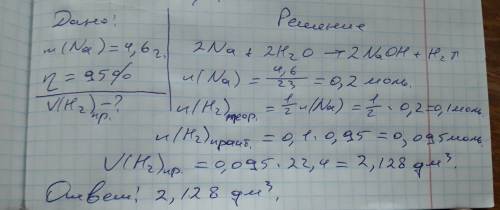 Дано:
m(Na) = 4,6 г.
η = 95%
V(H₂)пр. - ?
Решение
2Na + 2H₂O → 2NaOH + H₂↑
n(Na) = 4,6/23 = 0,2 моль.
n(H₂)теор. = 1/2 n(Na) = 1/2 · 0,2 = 0,1 моль.
n(H₂)практ. = 0,1 · 0,95 = 0,095 моль.
V(H₂)пр. = 0,095 · 22,4 = 2,128 дм³.
Ответ: 2,128 дм³.